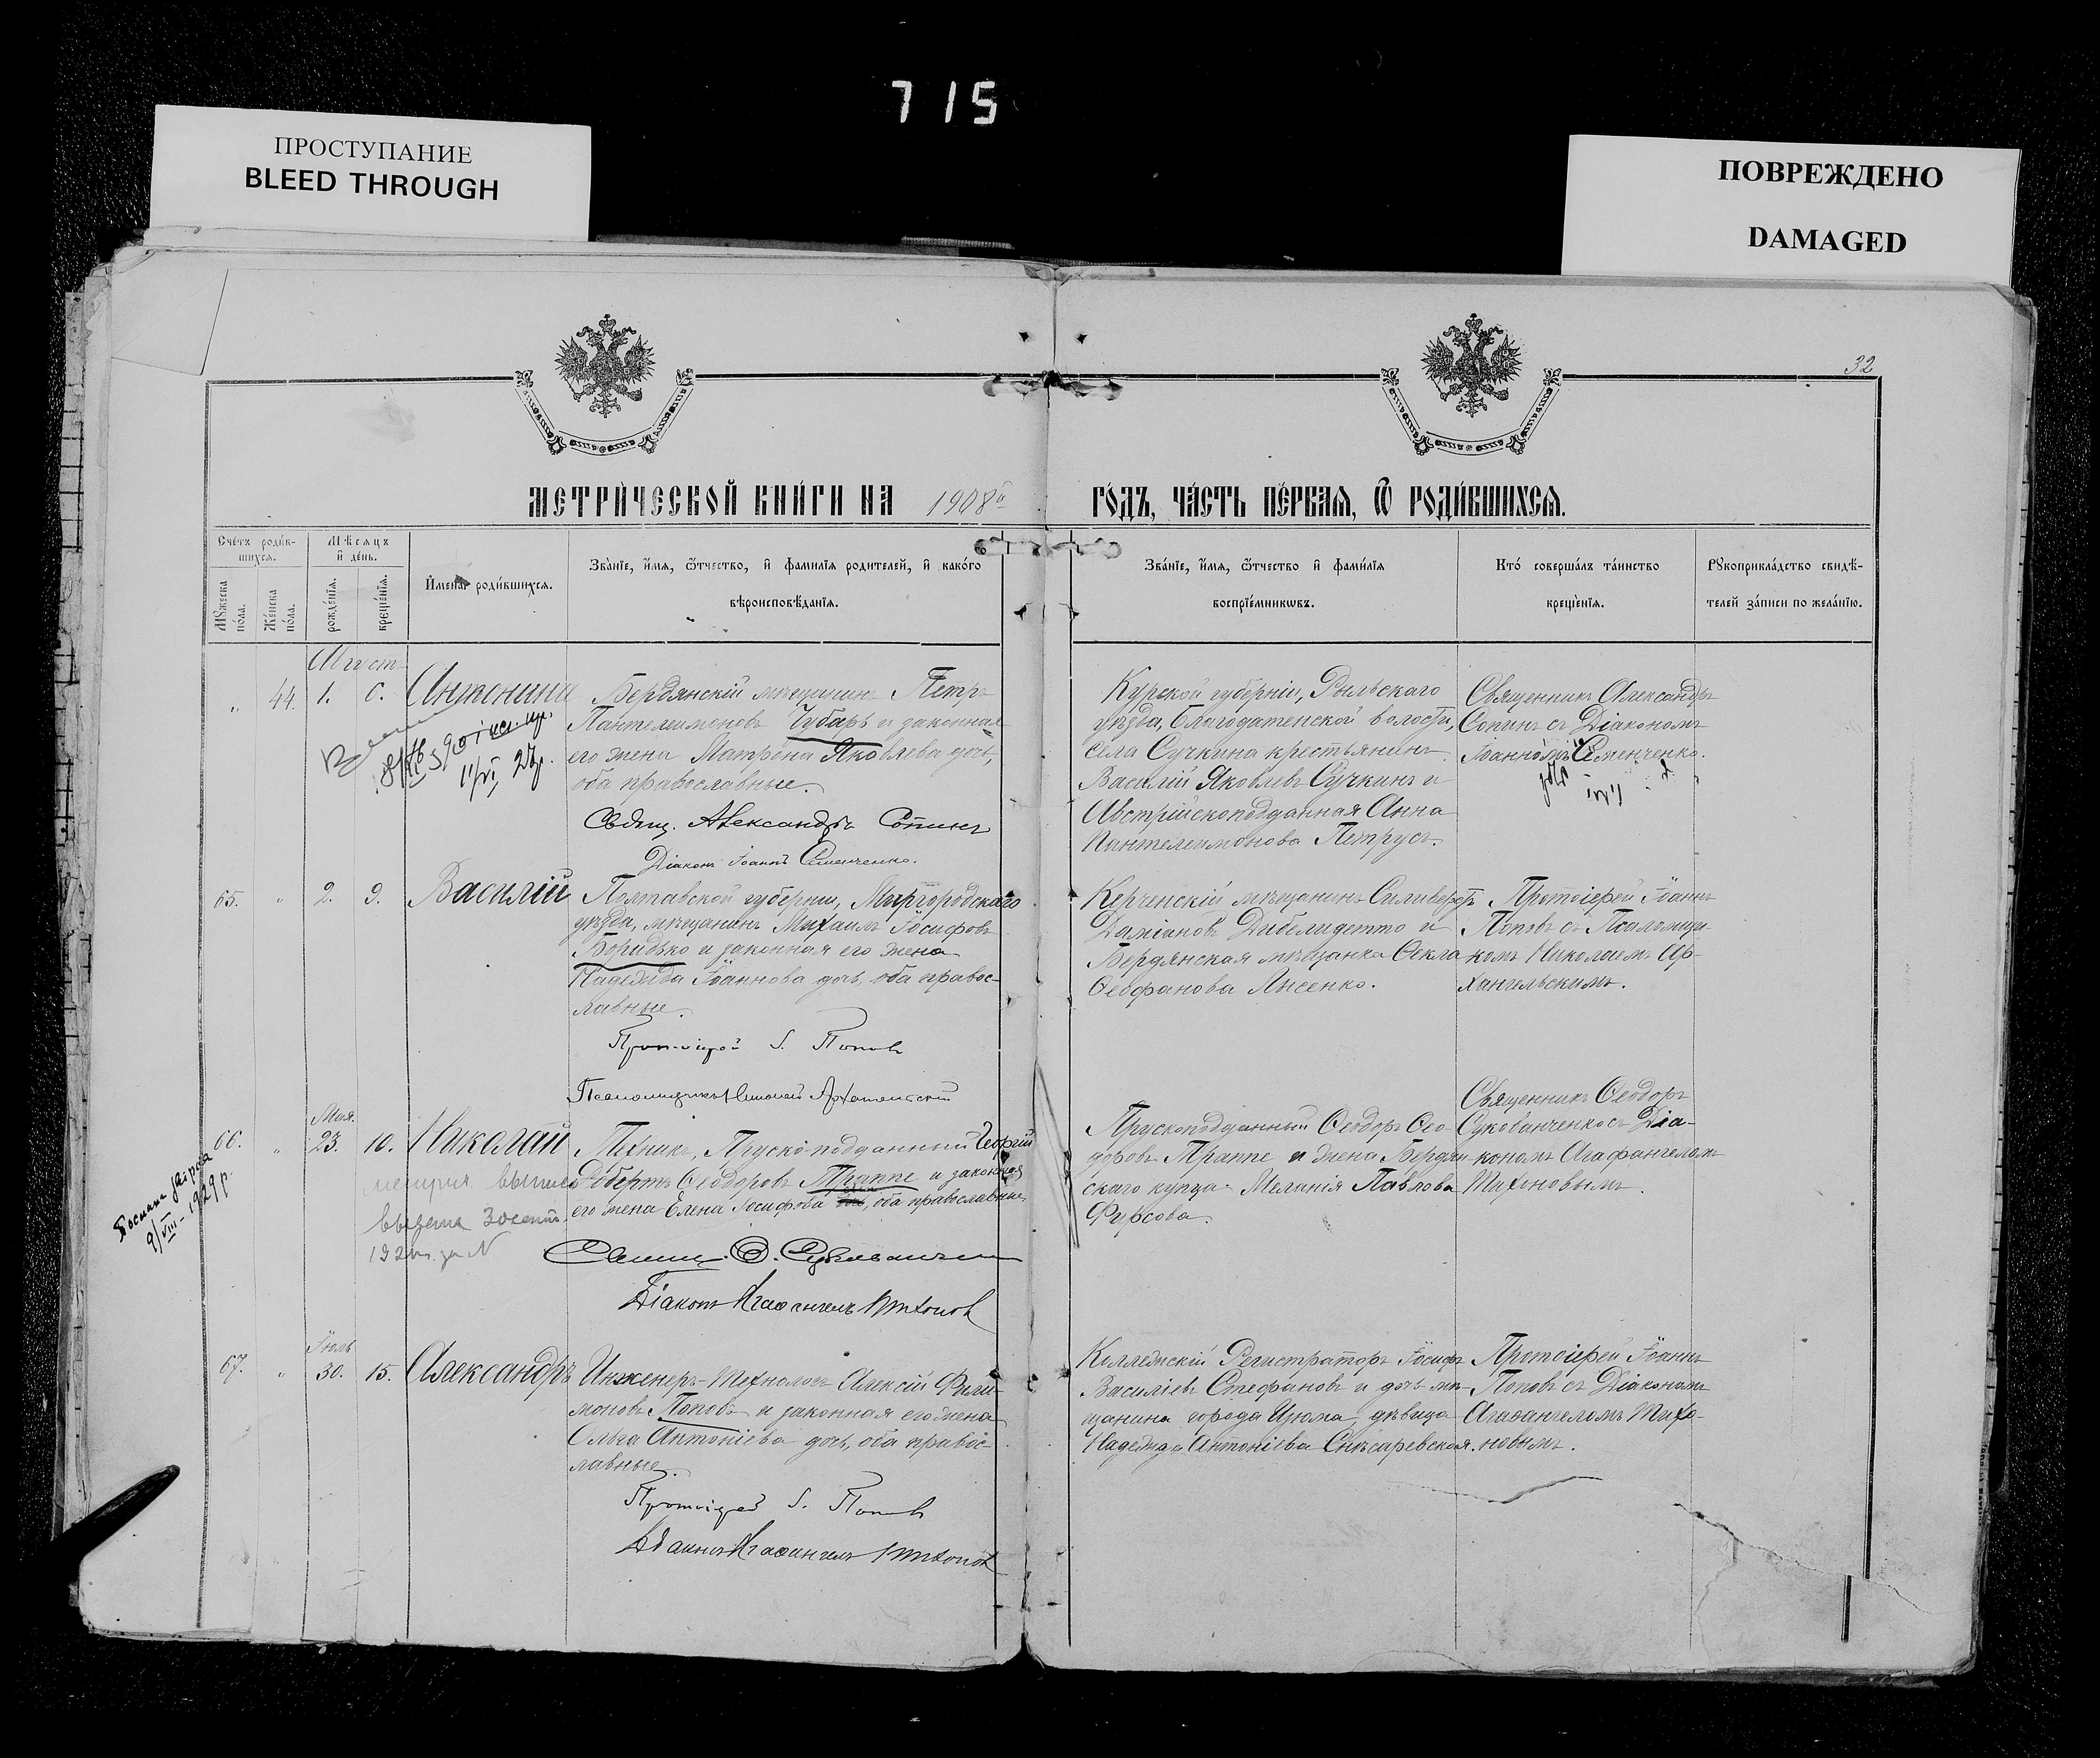 715
ПРОСТУПАНИЕ
BLEED THROUGH
ПОВРЕЖДЕНО
DAMAGED
32
МЕТРИ́ЧЕСКОЙ КНИ́ГИ НА 1908й
ГО́ДЪ, ЧА́СТЬ ПЕ́РВАѦ, Ѿ РОДИ́ВШИХСѦ.
Сче́тъ роди́в-
шихсѧ.
Мѣ́сяцъ
и де́нь.
Мꙋ́жеска
по́ла.
Же́нска
по́ла.
рожде́нїѧ.
креще́нїѧ.
Имена̀ роди́вшихсѧ.
Зва́нїе, и́мѧ, ѻ́тчество, и фами́лїѧ роди́телей, и како́гѡ
вѣроисповѣ́данїѧ.
Зва́нїе, и́мѧ, ѻ́тчество и фами́лїѧ
воспрїе́мникѡвъ.
Кто̀ соверша́лъ та́инство
креще́нїѧ.
Рꙋкоприкла́дство свидѣ́-
телей за́писи по жела́нїю.
Август
„ 44. 1. 6. Антонина
Бердянскій мѣщанинъ Петръ
Пантелеимоновъ Чубаръ и законная
его жена Матрена Яковлева дочь,
оба православные.
Свящ. Александръ Сопинъ
Діаконъ Іоаннъ Семенченко.
Курской губерніи, Рыльскаго
уѣзда, Благодатенской волости,
села Сучкина крестьянинъ
Василій Яковлевъ Сучкинъ и
Австрійскоподданная Анна
Пантелеимонова Петрусъ.
Священникъ Александръ
Сопинъ съ Діакономъ
Іоанномъ Семенченко.
65. „ 2. 9. Василій
Полтавской губерніи, Миргородскаго
уѣзда, мѣщанинъ Михаилъ Іосифовъ
Боридько и законная его жена
Надежда Іоаннова дочь, оба правос-
лавные.
Протоіерей І. Поповъ
Псаломщикъ Николай Архангельскій
Керченскій мѣщанинъ Силиверстъ
Даміановъ Дибелидетто и
Бердянская мѣщанка Ѳекла
Ѳеофанова Лысенко.
Протоіерей Іоаннъ
Поповъ съ Псаломщи-
комъ Николаемъ Ар-
хангельскимъ.
Мая.
66. „ 23. 10. Николай
Техникъ, Прускоподданный Георгій
Робертъ Ѳеодоровъ Траппе и законная
его жена Елена Іосифова, оба православные
Свящ. Ѳ. Сукованченко
Діаконъ Агаѳангелъ Тихоновъ
метрич. выпись
выдана
9/VIII-1929 р.
Прускоподданный Ѳеодоръ Ѳео-
доровъ Траппе и жена Бердян-
скаго купца Меланія Павлова
Фирсова.
Священникъ Ѳеодоръ
Сукованченко съ Діа-
кономъ Агафангеломъ
Тихоновымъ.
Іюль
67. „ 30. 15. Александръ
Инженеръ-Технологъ Алексій Фили-
моновъ Поповъ и законная его жена
Ольга Антоніева дочь, оба правос-
лавные.
Протоіерей І. Поповъ
Діаконъ Агаѳангелъ Тихоновъ
Коллежскій Регистраторъ Іосифъ
Василіевъ Стефановъ и дочь мѣ-
щанина города Изюма, дѣвица
Надежда Антоніева Снѣсаревская.
Протоіерей Іоаннъ
Поповъ съ Діакономъ
Агаѳангеломъ Тихо-
новымъ.